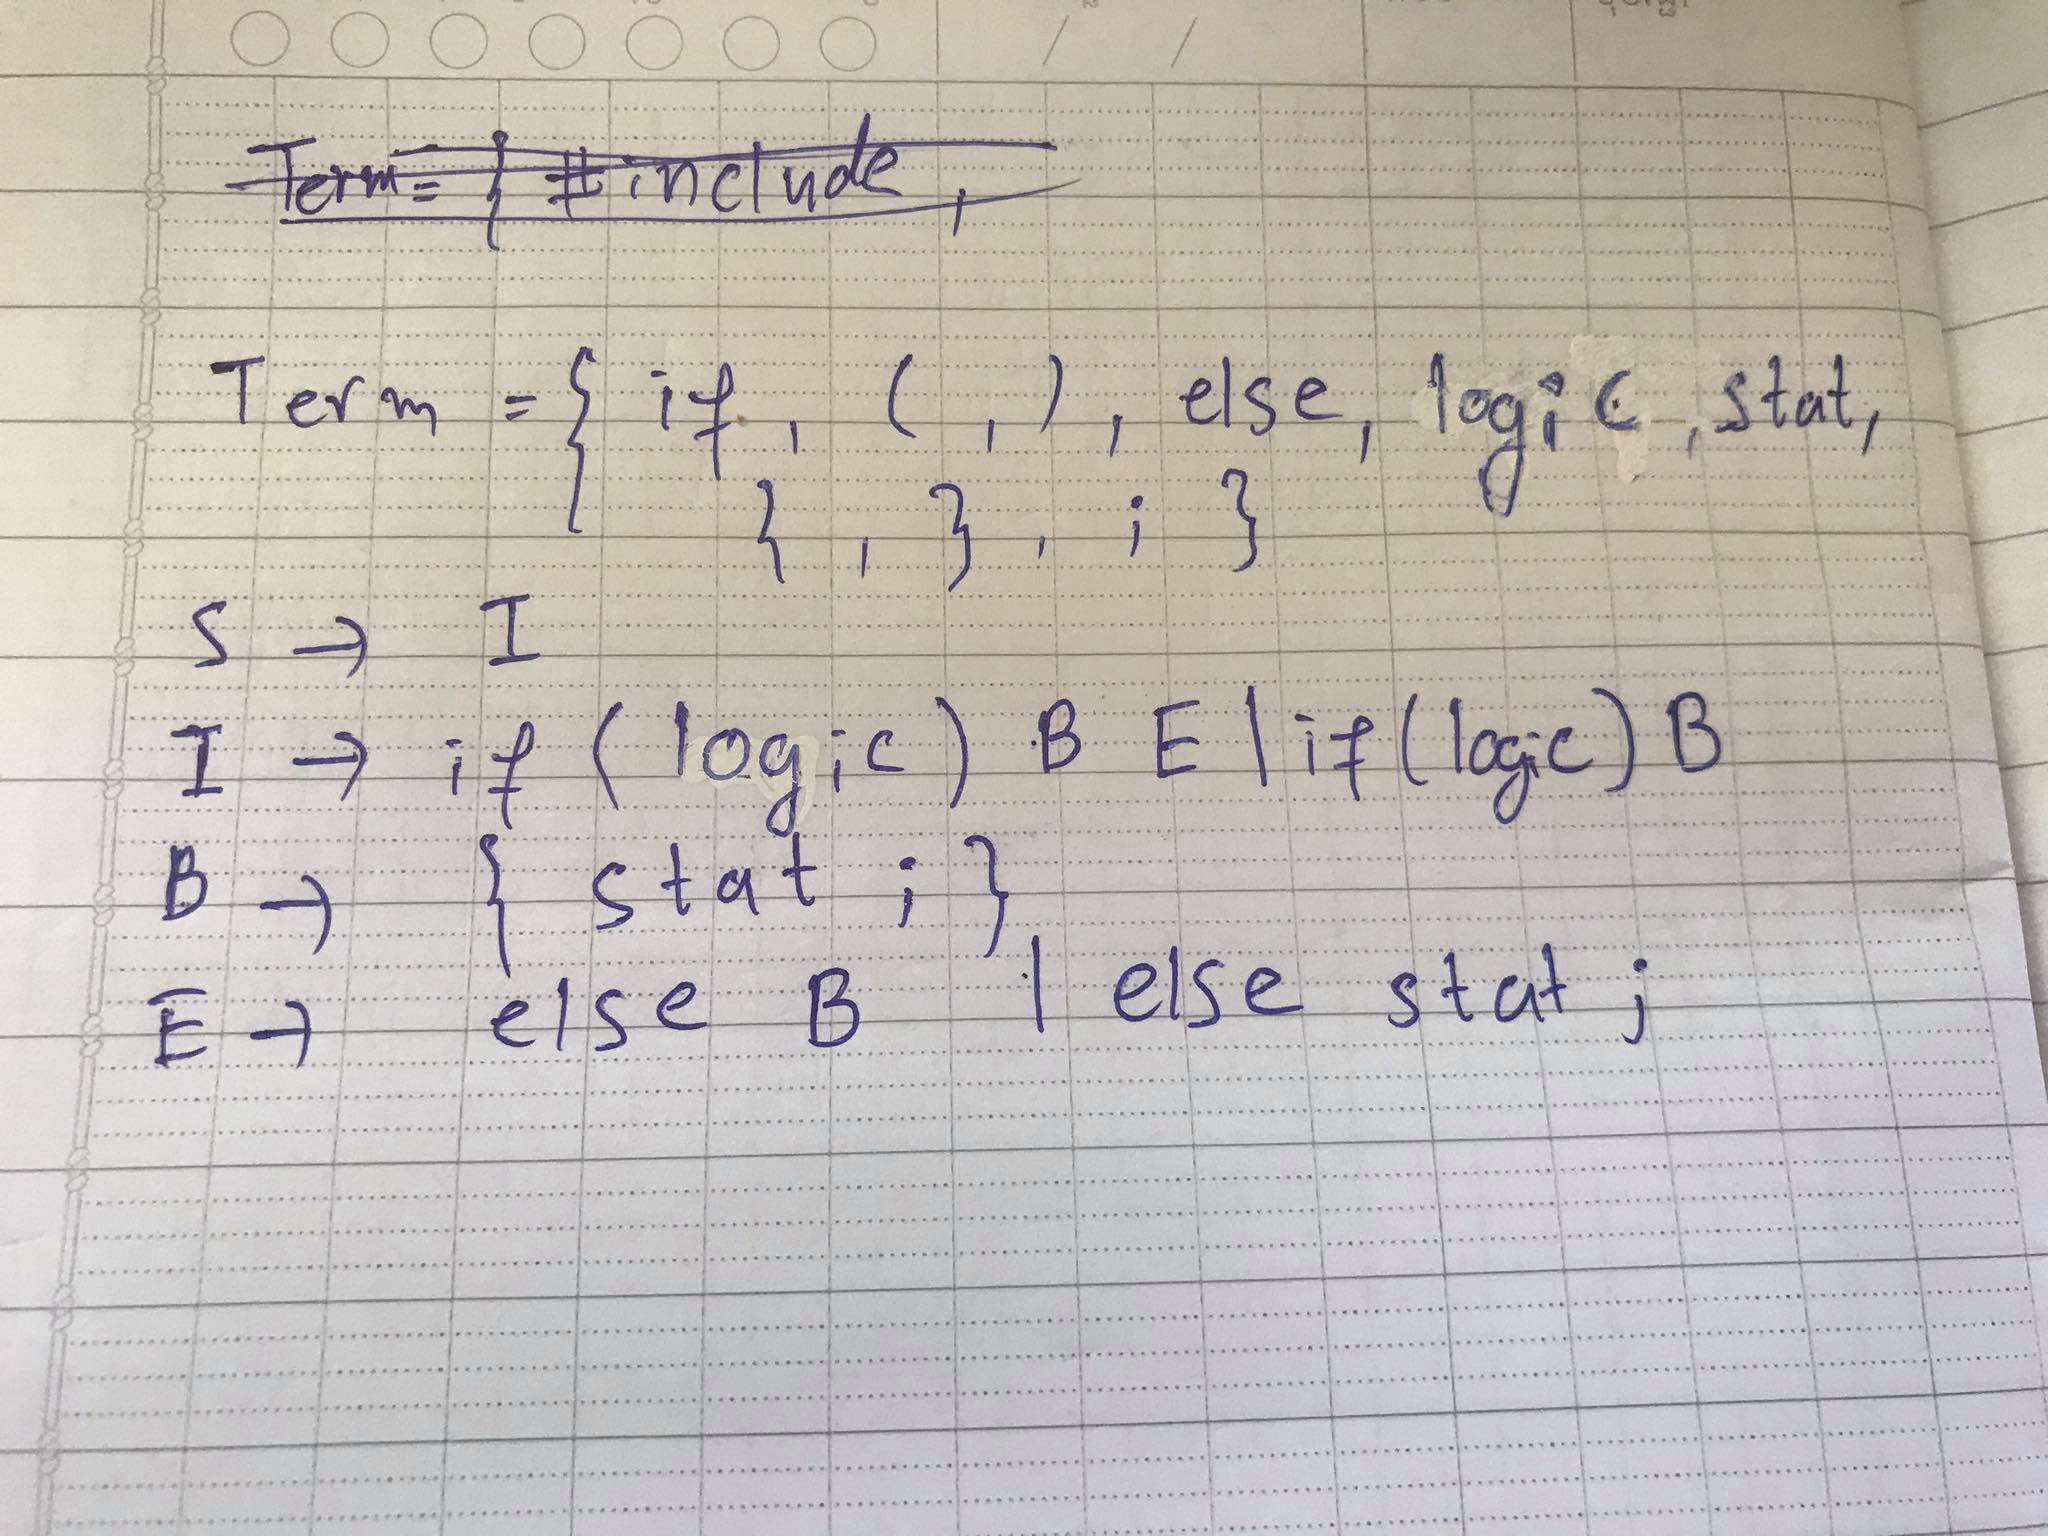 Term = { #include,
Term = { if, (, ), else, logic, stat,
{, }, ; }
S → I
I → if (logic) B E | if (logic) B
B → { stat ; }
E → else B | else stat ;